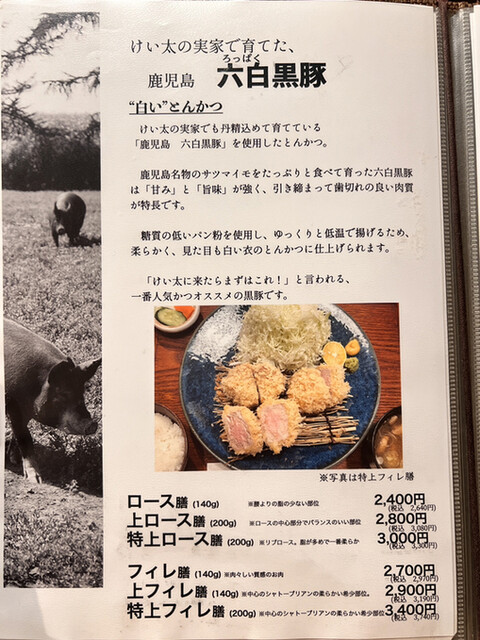 けい太の実家で育てた、
ろっぱく
鹿児島 六白黒豚
“白い”とんかつ
けい太の実家でも丹精込めて育てている
「鹿児島 六白黒豚」を使用したとんかつ。
鹿児島名物のサツマイモをたっぷりと食べて育った六白黒豚
は「甘み」と「旨味」が強く、引き締まって歯切れの良い肉質
が特長です。
糖質の低いパン粉を使用し、ゆっくりと低温で揚げるため、
柔らかく、見た目も白い衣のとんかつに仕上げられます。
「けい太に来たらまずはこれ！」と言われる、
一番人気かつオススメの黒豚です。
※写真は特上フィレ膳
ロース膳 (140g) ※腰よりの脂の少ない部位 2,400円
(税込 2,640円)
上ロース膳 (200g) ※ロースの中心部分でバランスのいい部位 2,800円
(税込 3,080円)
特上ロース膳 (200g) ※リブロース。脂が多めで一番柔らか 3,000円
(税込 3,300円)
フィレ膳 (140g) ※肉々しい質感のお肉 2,700円
(税込 2,970円)
上フィレ膳 (140g) ※中心のシャトーブリアンの柔らかい希少部位。 2,900円
(税込 3,190円)
特上フィレ膳 (200g) ※中心のシャトーブリアンの柔らかい希少部位。 3,400円
(税込 3,740円)